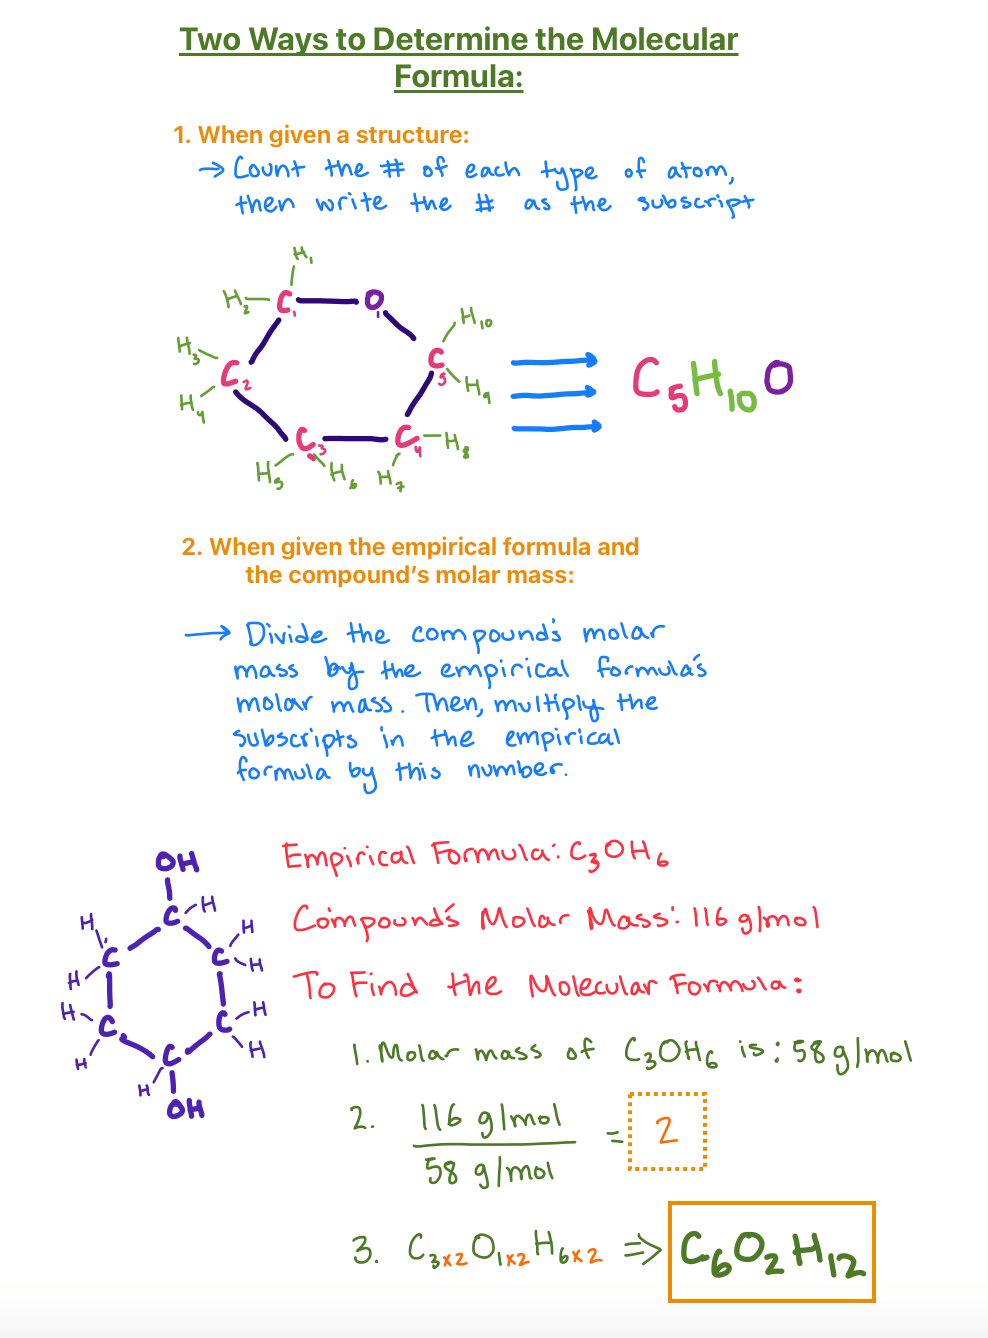 Two Ways to Determine the Molecular
Formula:
1. When given a structure:
→ Count the # of each type of atom,
then write the # as the subscript
H₁
H₂ C₁ O₁
H₁₀
H₃
C₅
C₂
H₉
C₅H₁₀O
H₄
C₃ C₄ H₈
H₅ H₆ H₇
2. When given the empirical formula and
the compound's molar mass:
→ Divide the compound's molar
mass by the empirical formula's
molar mass. Then, multiply the
subscripts in the empirical
formula by this number.
OH
C H
H H
C C H
H
H C C H
H C H
H
OH
Empirical Formula: C₃OH₆
Compound's Molar Mass: 116 g/mol
To Find the Molecular Formula:
1. Molar mass of C₃OH₆ is: 58 g/mol
2. 116 g/mol
58 g/mol
= 2
3. C₃ₓ₂O₁ₓ₂H₆ₓ₂ ⇒ C₆O₂H₁₂